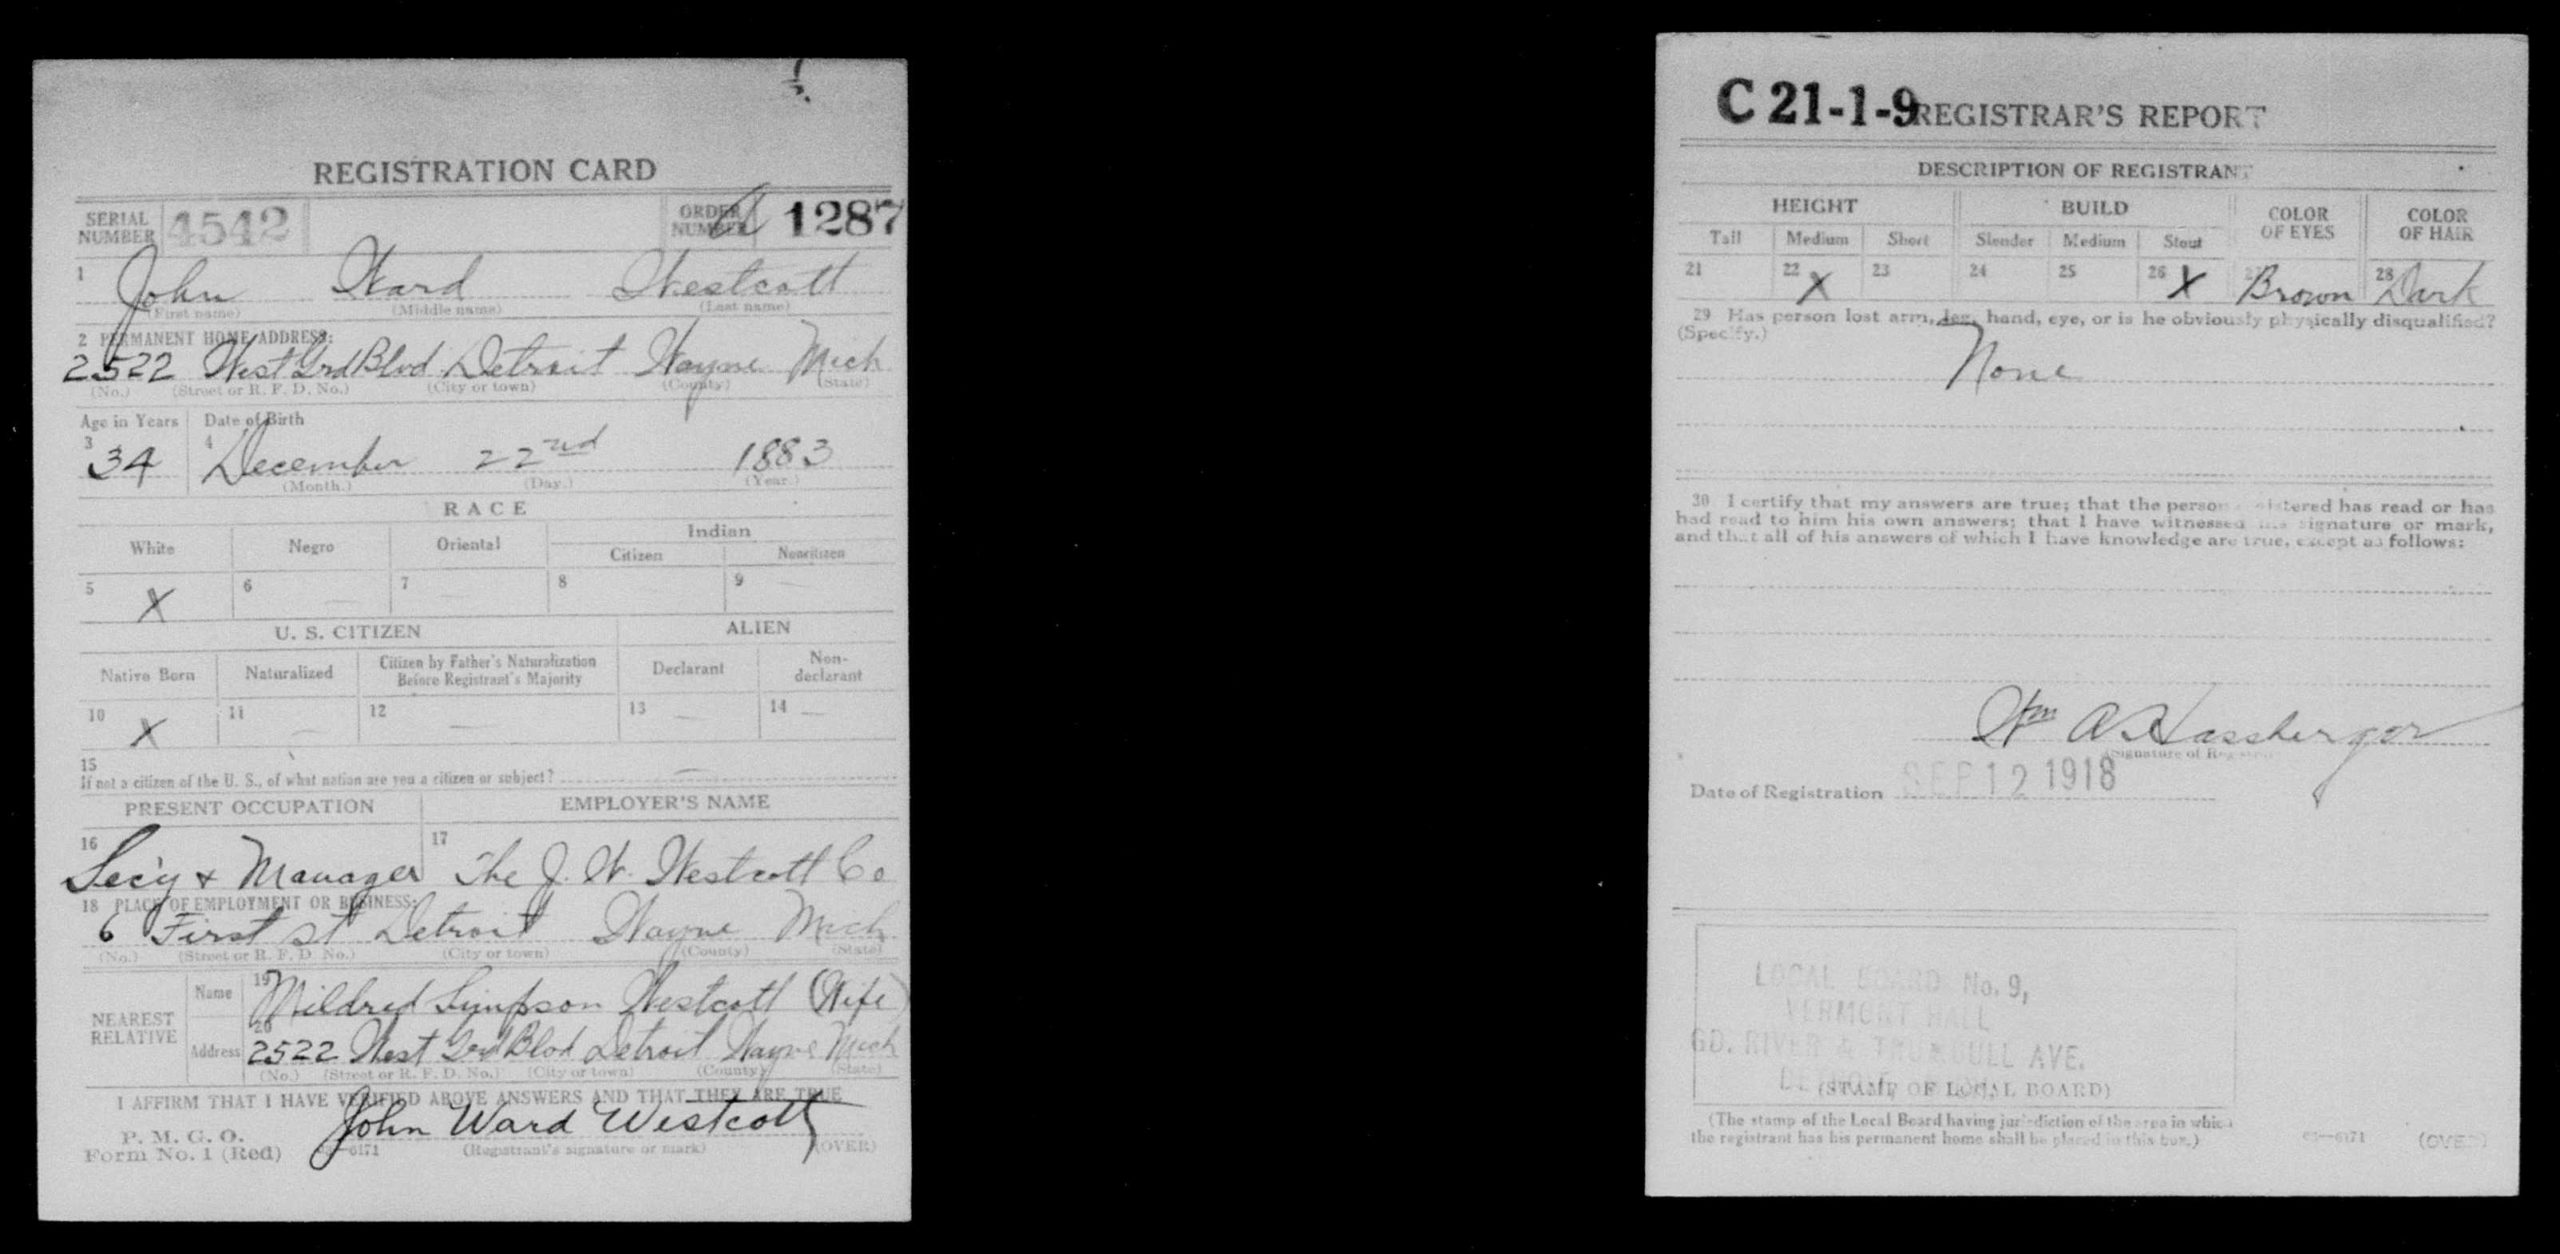 REGISTRATION CARD
SERIAL NUMBER 4542 ORDER NUMBER A 1287
1 John Ward Westcott
(First name) (Middle name) (Last name)
2 PERMANENT HOME ADDRESS:
2522 West Grd Blvd Detroit Wayne Mich
(No.) (Street or R. F. D. No.) (City or town) (County) (State)
Age in Years Date of Birth
3 34 4 December 22nd 1883
(Month.) (Day.) (Year.)
RACE
White Negro Oriental Indian
Citizen Noncitizen
5 X 6 — 7 — 8 9 —
U. S. CITIZEN ALIEN
Native Born Naturalized Citizen by Father's Naturalization Before Registrant's Majority Declarant Non-declarant
10 X 11 — 12 — 13 — 14 —
15
If not a citizen of the U. S., of what nation are you a citizen or subject? —
PRESENT OCCUPATION EMPLOYER'S NAME
16 Sec'y + Manager 17 The J. W. Westcott Co
18 PLACE OF EMPLOYMENT OR BUSINESS:
6 First st Detroit Wayne Mich
(No.) (Street or R. F. D. No.) (City or town) (County) (State)
NEAREST RELATIVE
Name 19 Mildred Simpson Westcott (Wife)
Address 20 2522 West Grd Blvd Detroit Wayne Mich
(No.) (Street or R. F. D. No.) (City or town) (County) (State)
I AFFIRM THAT I HAVE VERIFIED ABOVE ANSWERS AND THAT THEY ARE TRUE
John Ward Westcott
P. M. G. O.
Form No. 1 (Red) 6171 (Registrant's signature or mark) (OVER)
C 21-1-9 REGISTRAR'S REPORT
DESCRIPTION OF REGISTRANT
HEIGHT BUILD COLOR OF EYES COLOR OF HAIR
Tall Medium Short Slender Medium Stout
21 22 X 23 24 25 26 X 27 Brown 28 Dark
29 Has person lost arm, leg, hand, eye, or is he obviously physically disqualified?
(Specify.)
None
30 I certify that my answers are true; that the person registered has read or has
had read to him his own answers; that I have witnessed his signature or mark,
and that all of his answers of which I have knowledge are true, except as follows:
Wm A Hassberger
(Signature of Registrar)
Date of Registration SEP 12 1918
LOCAL BOARD No. 9,
VERMONT HALL
GD. RIVER & TRUMBULL AVE.
DETROIT,
(STAMP OF LOCAL BOARD)
(The stamp of the Local Board having jurisdiction of the area in which
the registrant has his permanent home shall be placed in this box.)
6171 (OVER)